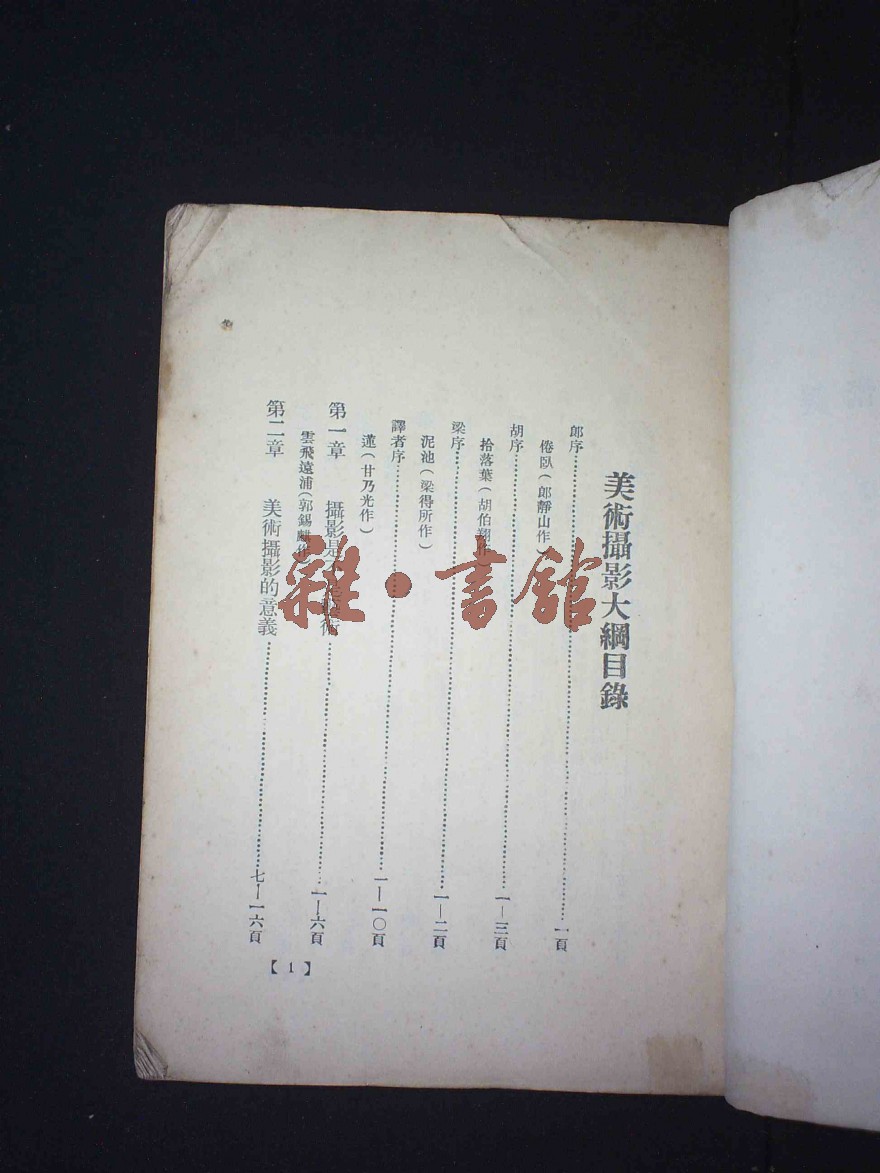 美術攝影大綱目錄
郎序……一頁
倦臥(郎靜山作)
胡序……一—三頁
拾落葉(胡伯翔作)
梁序……一—二頁
泥池(梁得所作)
譯者序……一—一〇頁
蓮(甘乃光作)
第一章 攝影是 術……一—六頁
雲飛遠浦(郭錫麒作)
第二章 美術攝影的意義……七—一六頁
【1】
雜·書館